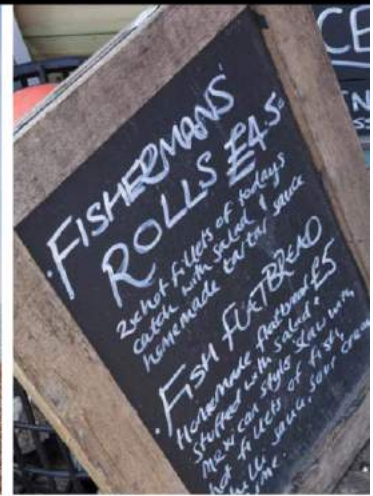 FISHERMANS'
ROLLS £4.50
2x hot fillets of todays
catch with salad &
homemade tartar sauce
FISH FLATBREAD
£5
Homemade flatbread
stuffed with salad &
mexican style slaw with
hot fillets of fish,
sauce, sour cream
CE